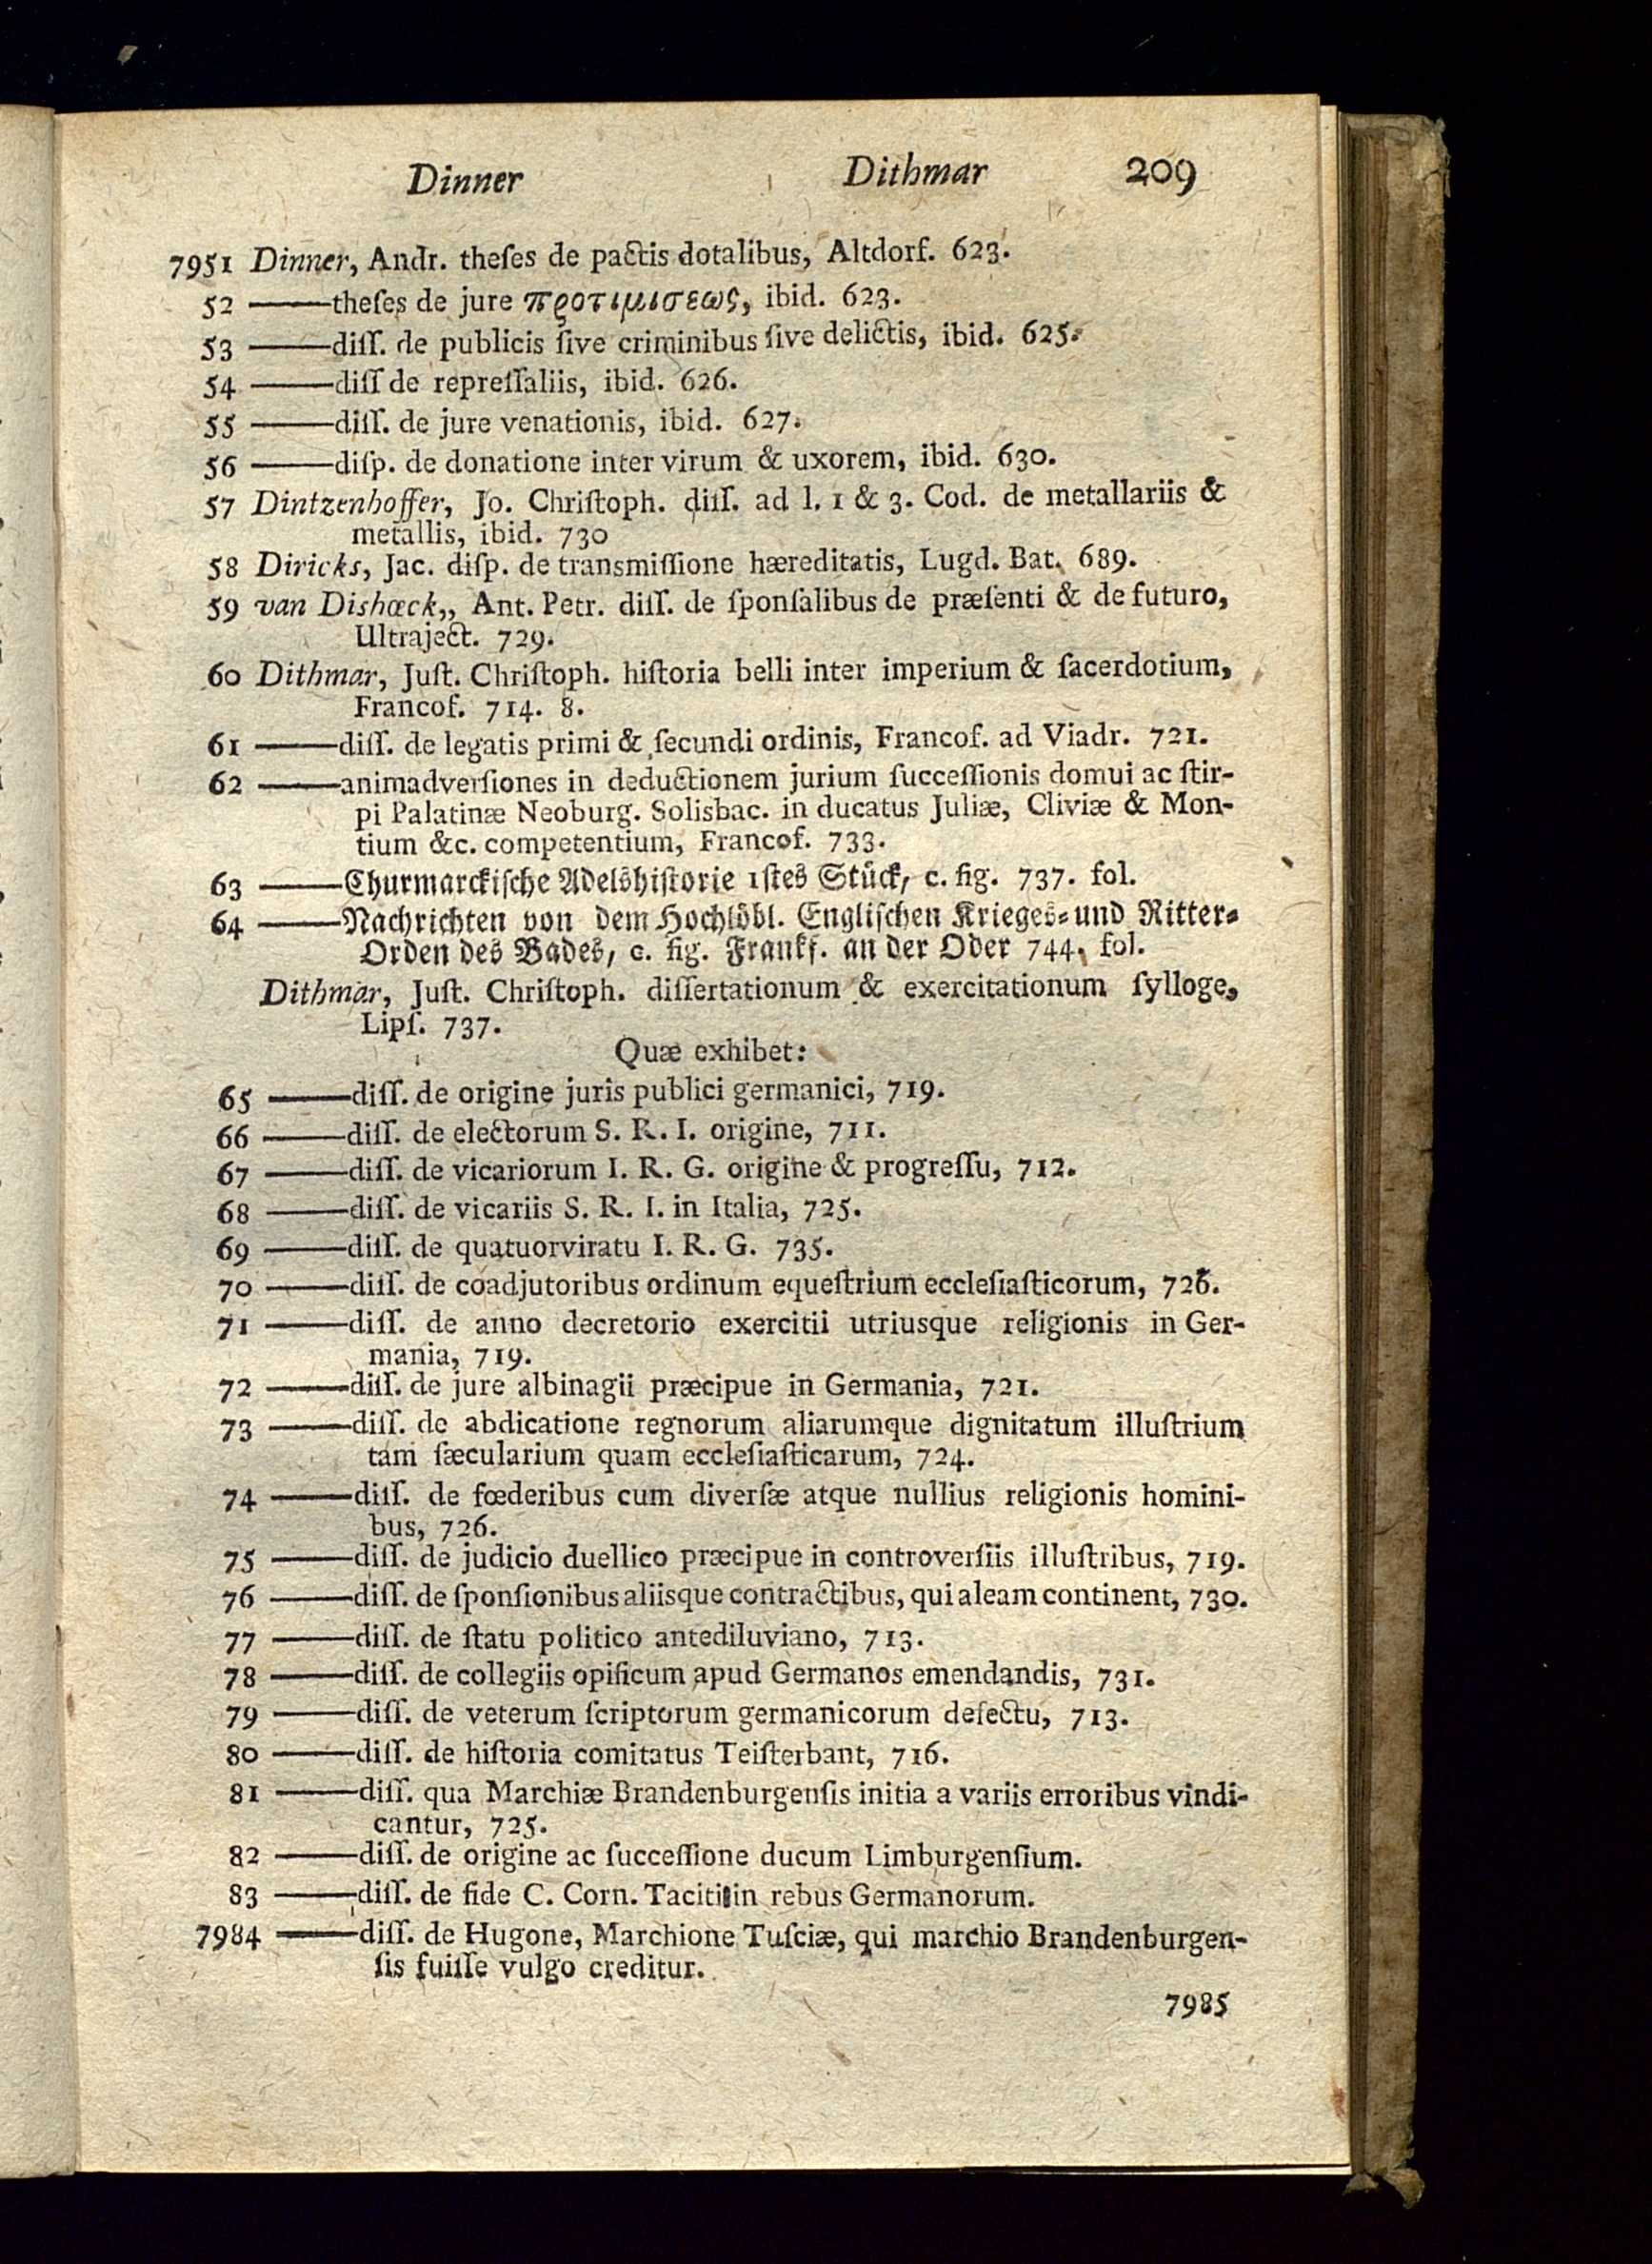 Dinner Dithmar 209
7951 Dinner, Andr. theſes de pactis dotalibus, Altdorf. 623.
52 ——theſes de jure προτιμισεως, ibid. 623.
53 ——diſſ. de publicis ſive criminibus ſive delictis, ibid. 625.
54 ——diſſ de repreſſaliis, ibid. 626.
55 ——diſſ. de jure venationis, ibid. 627.
56 ——diſp. de donatione inter virum & uxorem, ibid. 630.
57 Dintzenhoffer, Jo. Chriſtoph. diſſ. ad l. 1 & 3. Cod. de metallariis &
metallis, ibid. 730
58 Diricks, Jac. diſp. de transmiſſione hæreditatis, Lugd. Bat. 689.
59 van Dishœck,, Ant. Petr. diſſ. de ſponſalibus de præſenti & de futuro,
Ultraject. 729.
60 Dithmar, Juſt. Chriſtoph. hiſtoria belli inter imperium & ſacerdotium,
Francof. 714. 8.
61 ——diſſ. de legatis primi & ſecundi ordinis, Francof. ad Viadr. 721.
62 ——animadverſiones in deductionem jurium ſucceſſionis domui ac ſtir-
pi Palatinæ Neoburg. Solisbac. in ducatus Juliæ, Cliviæ & Mon-
tium &c. competentium, Francof. 733.
63 ——Churmarckiſche Adelshiſtorie 1ſtes Stück, c. fig. 737. fol.
64 ——Nachrichten von dem Hochlöbl. Engliſchen Krieges- und Ritter-
Orden des Bades, c. fig. Frankf. an der Oder 744. fol.
Dithmar, Juſt. Chriſtoph. diſſertationum & exercitationum ſylloge,
Lipſ. 737.
Quæ exhibet:
65 ——diſſ. de origine juris publici germanici, 719.
66 ——diſſ. de electorum S. R. I. origine, 711.
67 ——diſſ. de vicariorum I. R. G. origine & progreſſu, 712.
68 ——diſſ. de vicariis S. R. I. in Italia, 725.
69 ——diſſ. de quatuorviratu I. R. G. 735.
70 ——diſſ. de coadjutoribus ordinum equeſtrium eccleſiaſticorum, 726.
71 ——diſſ. de anno decretorio exercitii utriusque religionis in Ger-
mania, 719.
72 ——diſſ. de jure albinagii præcipue in Germania, 721.
73 ——diſſ. de abdicatione regnorum aliarumque dignitatum illuſtrium
tam ſæcularium quam eccleſiaſticarum, 724.
74 ——diſſ. de fœderibus cum diverſæ atque nullius religionis homini-
bus, 726.
75 ——diſſ. de judicio duellico præcipue in controverſiis illuſtribus, 719.
76 ——diſſ. de ſponſionibus aliisque contractibus, qui aleam continent, 730.
77 ——diſſ. de ſtatu politico antediluviano, 713.
78 ——diſſ. de collegiis opificum apud Germanos emendandis, 731.
79 ——diſſ. de veterum ſcriptorum germanicorum defectu, 713.
80 ——diſſ. de hiſtoria comitatus Teiſterbant, 716.
81 ——diſſ. qua Marchiæ Brandenburgenſis initia a variis erroribus vindi-
cantur, 725.
82 ——diſſ. de origine ac ſucceſſione ducum Limburgenſium.
83 ——diſſ. de fide C. Corn. Taciti in rebus Germanorum.
7984 ——diſſ. de Hugone, Marchione Tuſciæ, qui marchio Brandenburgen-
ſis fuiſſe vulgo creditur.
7985